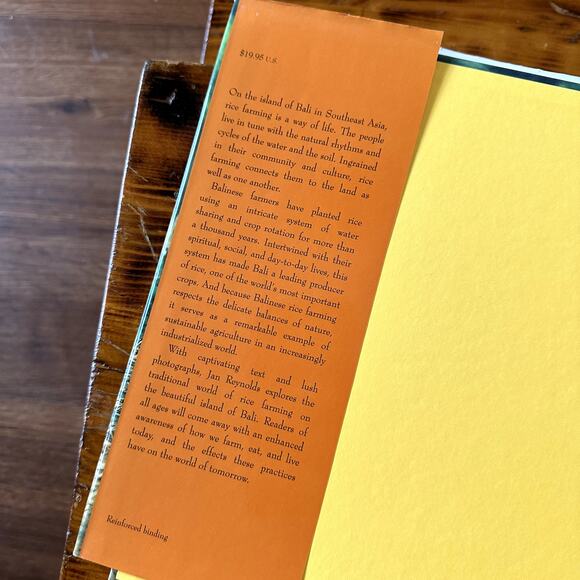 $19.95 U.S.
On the island of Bali in Southeast Asia,
rice farming is a way of life. The people
live in tune with the natural rhythms and
cycles of the water and the soil. Ingrained
in their community and culture, rice
farming connects them to the land as
well as one another.
Balinese farmers have planted rice
using an intricate system of water
sharing and crop rotation for more than
a thousand years. Intertwined with their
spiritual, social, and day-to-day lives, this
system has made Bali a leading producer
of rice, one of the world's most important
crops. And because Balinese rice farming
respects the delicate balances of nature,
it serves as a remarkable example of
sustainable agriculture in an increasingly
industrialized world.
With captivating text and lush
photographs, Jan Reynolds explores the
traditional world of rice farming on
the beautiful island of Bali. Readers of
all ages will come away with an enhanced
awareness of how we farm, eat, and live
today, and the effects these practices
have on the world of tomorrow.
Reinforced binding